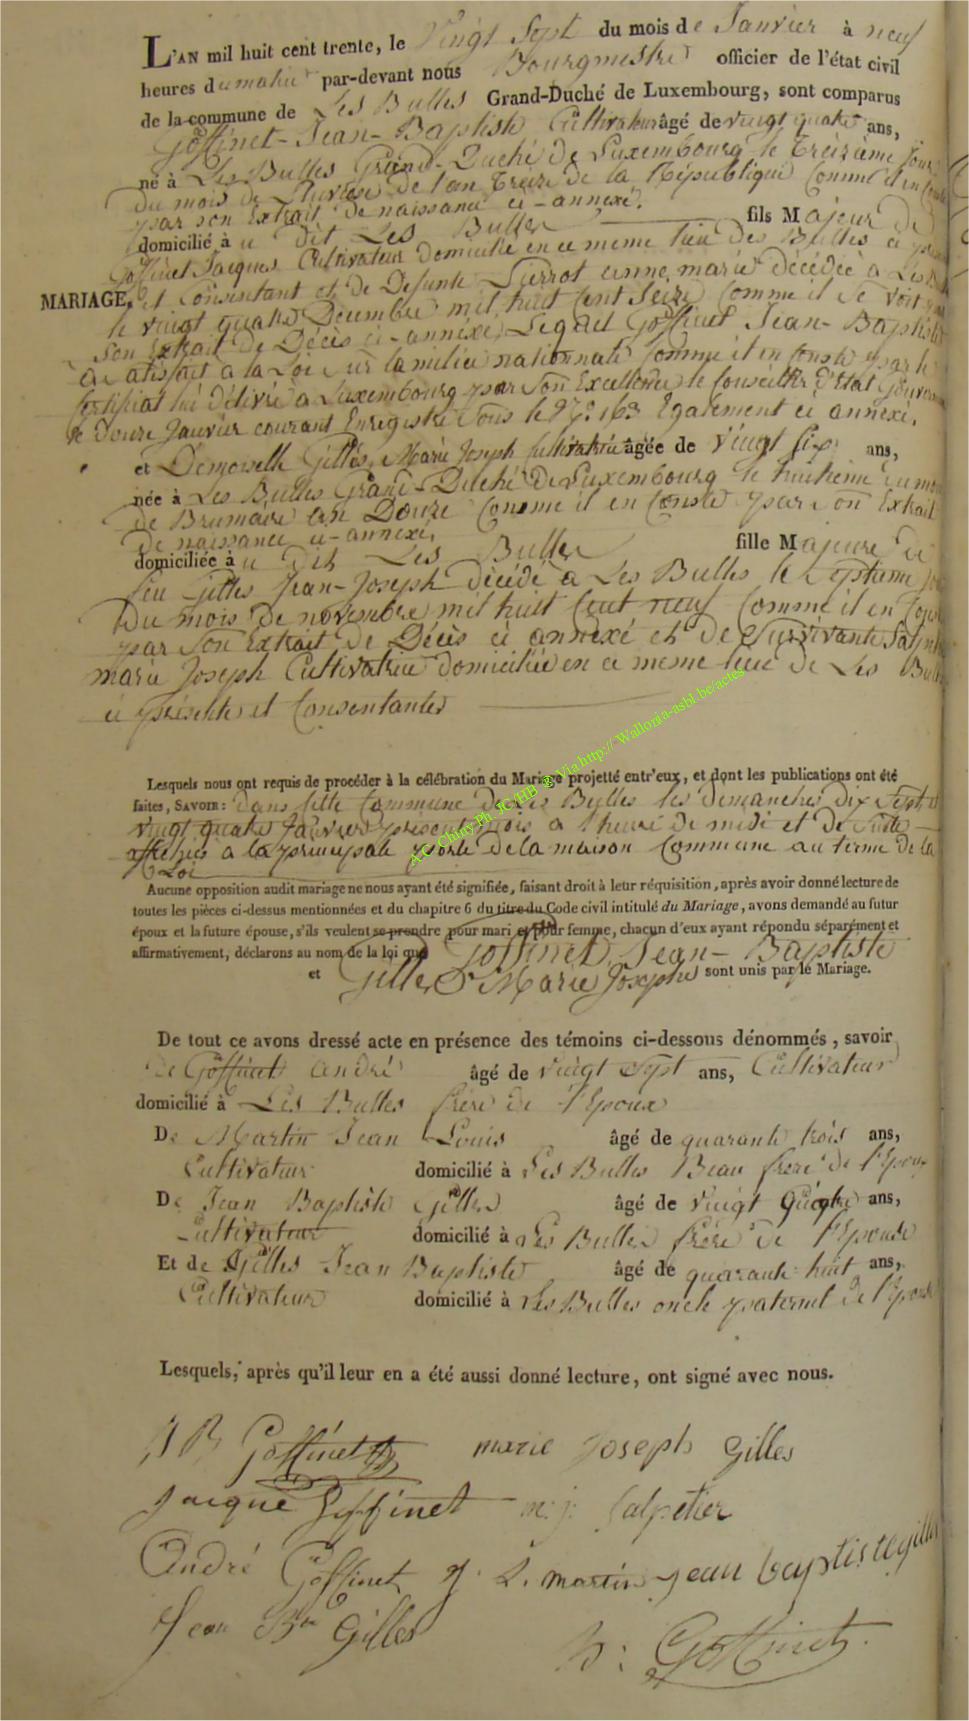 L'AN mil huit cent trente, le Vingt Sept du mois de Janvier à neuf
heures du matin par-devant nous Bourgmestre officier de l'état civil
de la commune de Les Bulles Grand-Duché de Luxembourg, sont comparus
Goffinet Jean-Baptiste Cultivateur âgé de vingt quatre ans,
né à Les Bulles Grand-Duché de Luxembourg le treizième jour
du mois de Pluviose de l'an treize de la République Comme il en Conste
par son Extrait de naissance ci-annexé.
domicilié à u dit Les Bulles fils Majeur de
Goffinet Jacques Cultivateur domicilié en ce meme lieu des Bulles ci
MARIAGE, et Consentant et de Defunte Pierrot anne marie décédée à Les
le vingt quatre Décembre mil huit Cent Seize Comme il se voit
Son Extrait de Décès ci-annexé, Lequel Goffinet Jean-Baptiste
à satisfait a la Loi sur la milice nationnale Comme il en Conste par le
Certificat lui délivré à Luxembourg par Son Excellence le Conseiller d'Etat
le Douze Janvier courant Enregistré Sous le N° 163 Egalement ci annexé.
et Demoiselle Gilles, Marie Joseph Cultivatrice âgée de vingt six ans,
née à Les Bulles Grand-Duché de Luxembourg le huitieme du mois
de Brumaire an Douze Comme il en Conste par son Extrait
de naissance ci-annexé,
domiciliée à u dit Les Bulles fille Majeure de
feu Gilles Jean-Joseph décédé à Les Bulles le Septieme
Du mois de novembre mil huit Cent neuf Comme il en
par Son Extrait de Décès ci annexé et de Survivante
marie Joseph Cultivatrice domiciliée en ce meme lieu de Les
ci présente et Consentante
Lesquels nous ont requis de procéder à la célébration du Mariage projetté entr'eux, et dont les publications ont été
faites, SAVOIR: dans cette Commune de Les Bulles les demanches dix sept et
vingt quatre Janvier présent mois a l'heure de midi et de suite
affichés à la principale porte de la maison Commune au terme de la
Loi
A.C. Chiny Ph. JC/HB © Via http://Wallonia-asbl.be/actes
Aucune opposition audit mariage ne nous ayant été signifiée, faisant droit à leur réquisition, après avoir donné lecture de
toutes les pièces ci-dessus mentionnées et du chapitre 6 du titre du Code civil intitulé du Mariage, avons demandé au futur
époux et la future épouse, s'ils veulent se prendre pour mari et pour femme, chacun d'eux ayant répondu séparément et
affirmativement, déclarons au nom de la loi que Goffinet, Jean-Baptiste
et Gilles Marie Joseph sont unis par le Mariage.
De tout ce avons dressé acte en présence des témoins ci-dessous dénommés, savoir
De Goffinet André âgé de vingt Sept ans, Cultivateur
domicilié à Les Bulles frère de l'Epoux
De Martin Jean Louis âgé de quarante trois ans,
Cultivateur domicilié à Les Bulles Beau frère de l'Epoux
De Jean Baptiste Gilles âgé de vingt quatre ans,
Cultivateur domicilié à Les Bulles frère de l'Epouse
Et de Gilles Jean Baptiste âgé de quarante huit ans,
Cultivateur domicilié à Les Bulles oncle paternel de l'Epouse
Lesquels, après qu'il leur en a été aussi donné lecture, ont signé avec nous.
J B Goffinet marie Joseph Gilles
Jacque Goffinet m. j. Salpetier
André Goffinet J. L. martin Jean baptiste gilles
Jean Bte Gilles
h: Goffinet.